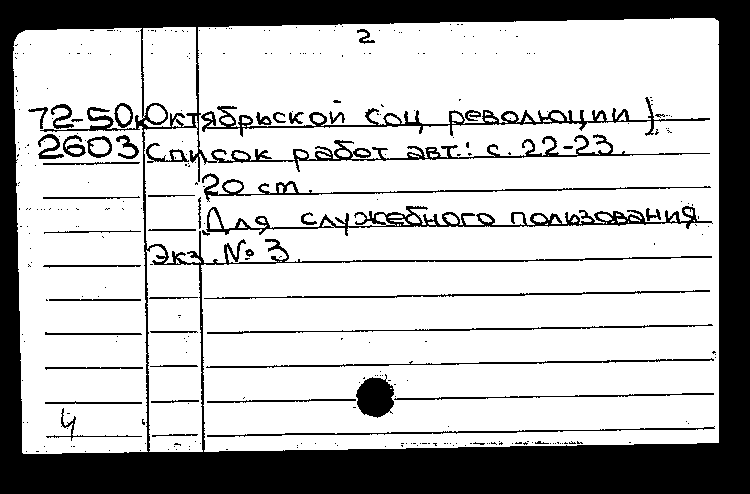 2
72-50к Октябрьской Соц революции).
2603 Список работ авт.: с. 22-23.
20 см.
Для служебного пользования
Экз. № 3.
4